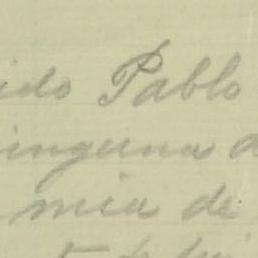 ido Pablo
inguna d
mia de